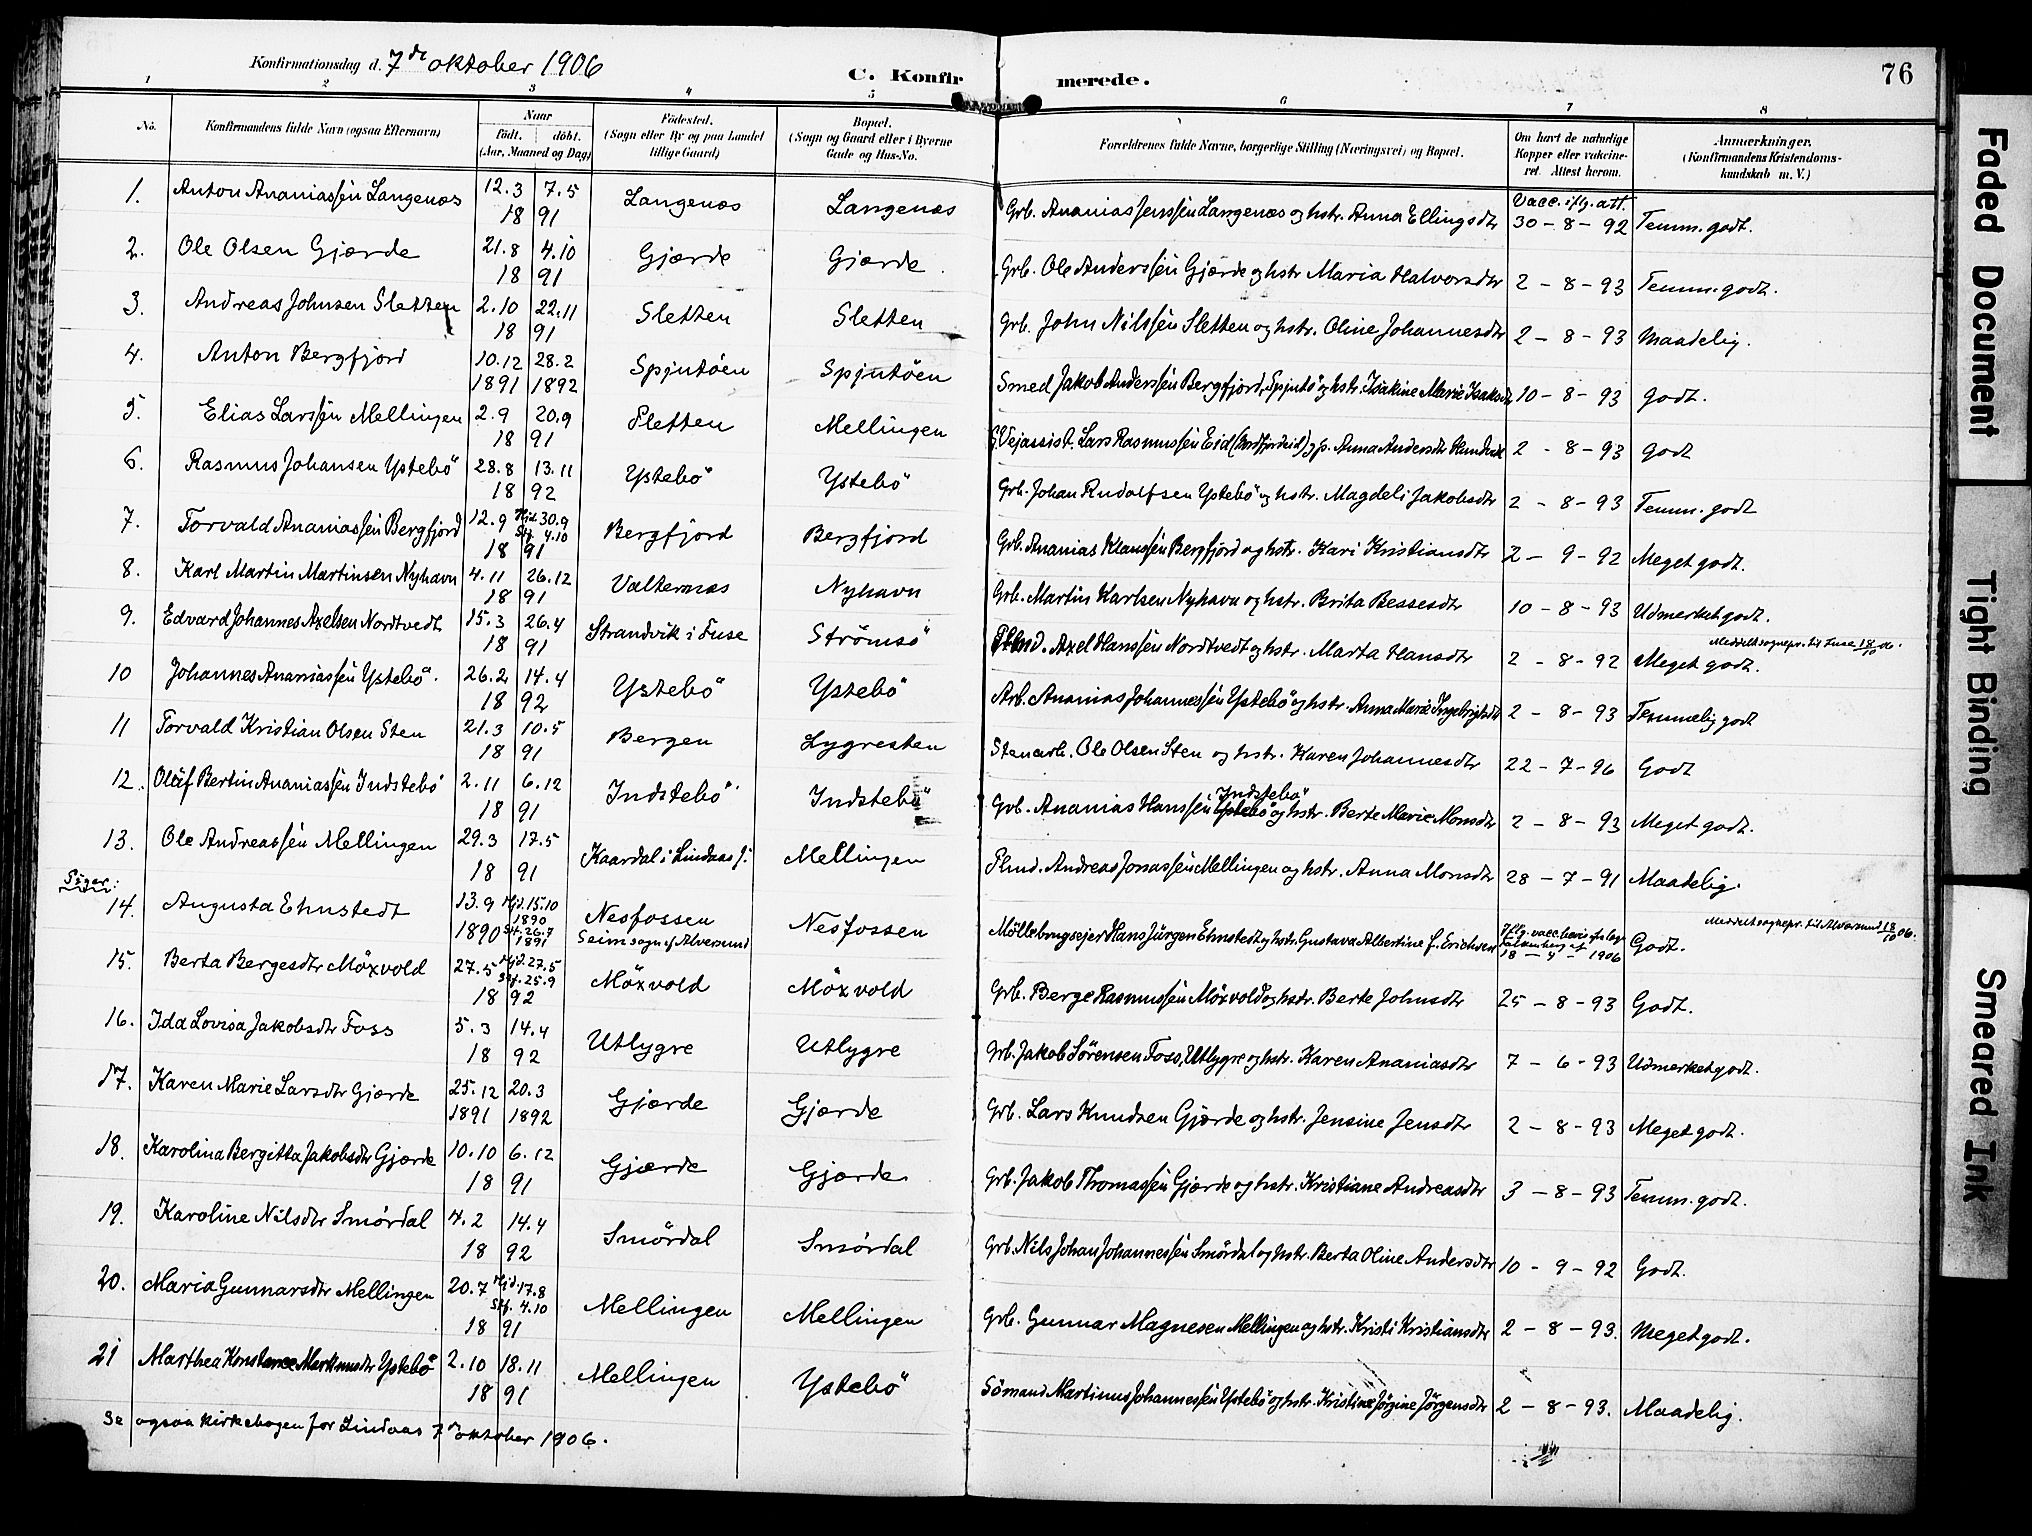 Konfirmationsdag d. 7de oktober 1906
C. Konfirmerede.
76
1 2 3 4 5 6 7 8
No. Konfirmandens fulde Navn (ogsaa Efternavn) Naar født. døbt. (Aar, Maaned og Dag) Fødested. (Sogn eller By og paa Landet tillige Gaard) Bopæl. (Sogn og Gaard eller i Byerne Gade og Hus-No. Forældrenes fulde Navne, borgerlige Stilling (Næringsvei) og Bopæl. Om havt de naturlige Kopper eller vakcineret. Attest herom. Anmærkninger. (Konfirmandens Kristendomskundskab m. V.)
1. Anton Ananiassen Langenæs 12.3 7.5 1891 Langenæs Langenæs Grb. Ananias Jenssen Langenæs og hstr. Anna Ellingsdtr Vacc. iflg. att. 30-8-92 Temm. godt.
2. Ole Olsen Gjærde 21.8 4.10 1891 Gjærde Gjærde Grb. Ole Anderssen Gjærde og hstr Maria Halvorsdtr 2-8-93 Temm. godt.
3. Andreas Johnsen Sletten 2.10 22.11 1891 Sletten Sletten Grb. John Nilssen Sletten og hstr. Oline Johannesdtr 2-8-93 Maadelig.
4. Anton Bergfjord 10.12 1891 28.2 1892 Spjutøen Spjutøen Smed Jakob Anderssen Bergfjord, Spjutø og hstr. Isakine Marie Isaksdtr 10-8-93 godt.
5. Elias Larssen Mellingen 2.9 20.9 1891 Sletten Mellingen Vejassist. Lars Rasmussen Eid (Nordfjordeid) og p. Anna Andersdtr 2-8-93 godt
6. Rasmus Johansen Ystebö 28.8 13.11 1892 Ystebö Ystebö Grb. Johan Rudolfsen Ystebö og hstr. Magdeli Jakobsdtr 2-8-93 Temm. godt
7. Torvald Ananiassen Bergfjord 12.9 Hjd. 30.9 Stf. 4.10 1891 Bergfjord Bergfjord Grb. Ananias Klaussen Bergfjord og hstr. Kari Kristiansdtr 2-9-92 Meget godt.
8. Karl Martin Martinsen Nyhavn 4.11 26.12 1891 Valternæs Nyhavn Grb. Martin Karlsen Nyhavn og hstr. Brita Bessesdtr 10-8-93 Udmerket godt.
9. Edvard Johannes Axelsen Nordtvedt 15.3 26.4 1891 Strandvik i Fuse Strömsö Plmd. Axel Hanssen Nordtvedt og hstr. Marta Hansdtr 2-8-92 Meddelt sognepr. til Fuse 18/10 06. Meget godt.
10 Johannes Ananiassen Ystebö. 26.2 14.4 1892 Ystebö Ystebö Arb. Ananias Johannessen Ystebö og hstr. Anna Marie Ingebrigtsdtr 2-8-93 Temmelig godt
11 Torvald Kristian Olsen Sten 21.3 10.5 1891 Bergen Lygresten Stenarb. Ole Olsen Sten og hstr. Karen Johannesdtr 22-7-96 Godt
12. Oluf Bertin Ananiassen Indstebö 2.11 6.12 1891 Indstebö Indstebö Grb. Ananias Hanssen Ystebö Indstebö og hstr. Berte Marie Monsdtr 2-8-93 Meget godt.
13. Ole Andreassen Mellingen 29.3 17.5 1891 Kaardal i Lindaas s. Mellingen Plmd. Andreas Jonassen Mellingen og hstr. Anna Monsdtr 28-7-91 Maadelig.
Piger:
14. Augusta Ehmstedt 13.9 1890 Hjd. 15.10 1890 Stf. 26.7 1891 Nesfossen Seim sogn af Alversund Nesfossen Møllebrugsejer Hans Jürgen Ehmstedt og hstr. Gustava Albertine f. Erichsen Iflg. vacc. bevis af 18-4-1906 Meddelt sognepr. til Alversund 18/10 06. Godt.
15. Berta Bergesdtr Möxvold 27.5 Hjd. 27.5 Stf. 25.9 1892 Möxvold Möxvold Grb. Berge Rasmussen Möxvold og hstr. Berte Johnsdtr 25-8-93 Godt.
16. Ida Lovisa Jakobsdtr Foss 5.3 14.4 1892 Utlygre Utlygre Grb. Jakob Sørensen Foss, Utlygre og hstr. Karen Ananiasdtr 7-6-93 Udmerket godt.
17. Karen Marie Larsdtr Gjærde 25.12 1891 20.3 1892 Gjærde Gjærde Grb. Lars Knudsen Gjærde og hstr. Jensine Jensdtr 2-8-93 Meget godt.
18. Karolina Bergitta Jakobsdtr Gjærde 10.10 6.12 1891 Gjærde Gjærde Grb. Jakob Thomassen Gjærde og hstr. Kristiane Andreasdtr 3-8-93 Temm. godt.
19. Karoline Nilsdtr Smördal 4.2 14.4 1892 Smördal Smördal Grb. Nils Johan Johannessen Smördal og hstr. Berta Oline Andersdtr 10-9-92 Godt.
20. Maria Gunnarsdtr Mellingen 20.7 Hjd. 17.8 Stf. 4.10 1891 Mellingen Mellingen Grb. Gunnar Magnesen Mellingen og hstr. Kristi Kristiansdtr 2-8-93. Meget godt.
21 Marthea Konstance Martinusdtr Ystebö 2.10 18.11 1891 Mellingen Ystebö Sömand Martinus Johannessen Ystebö og hstr. Kristine Jørgine Jørgensdtr 2-8-93. Maadelig.
Se ogsaa kirkebogen for Lindaas 7de oktober 1906.
Faded Document
Tight Binding
Smeared Ink